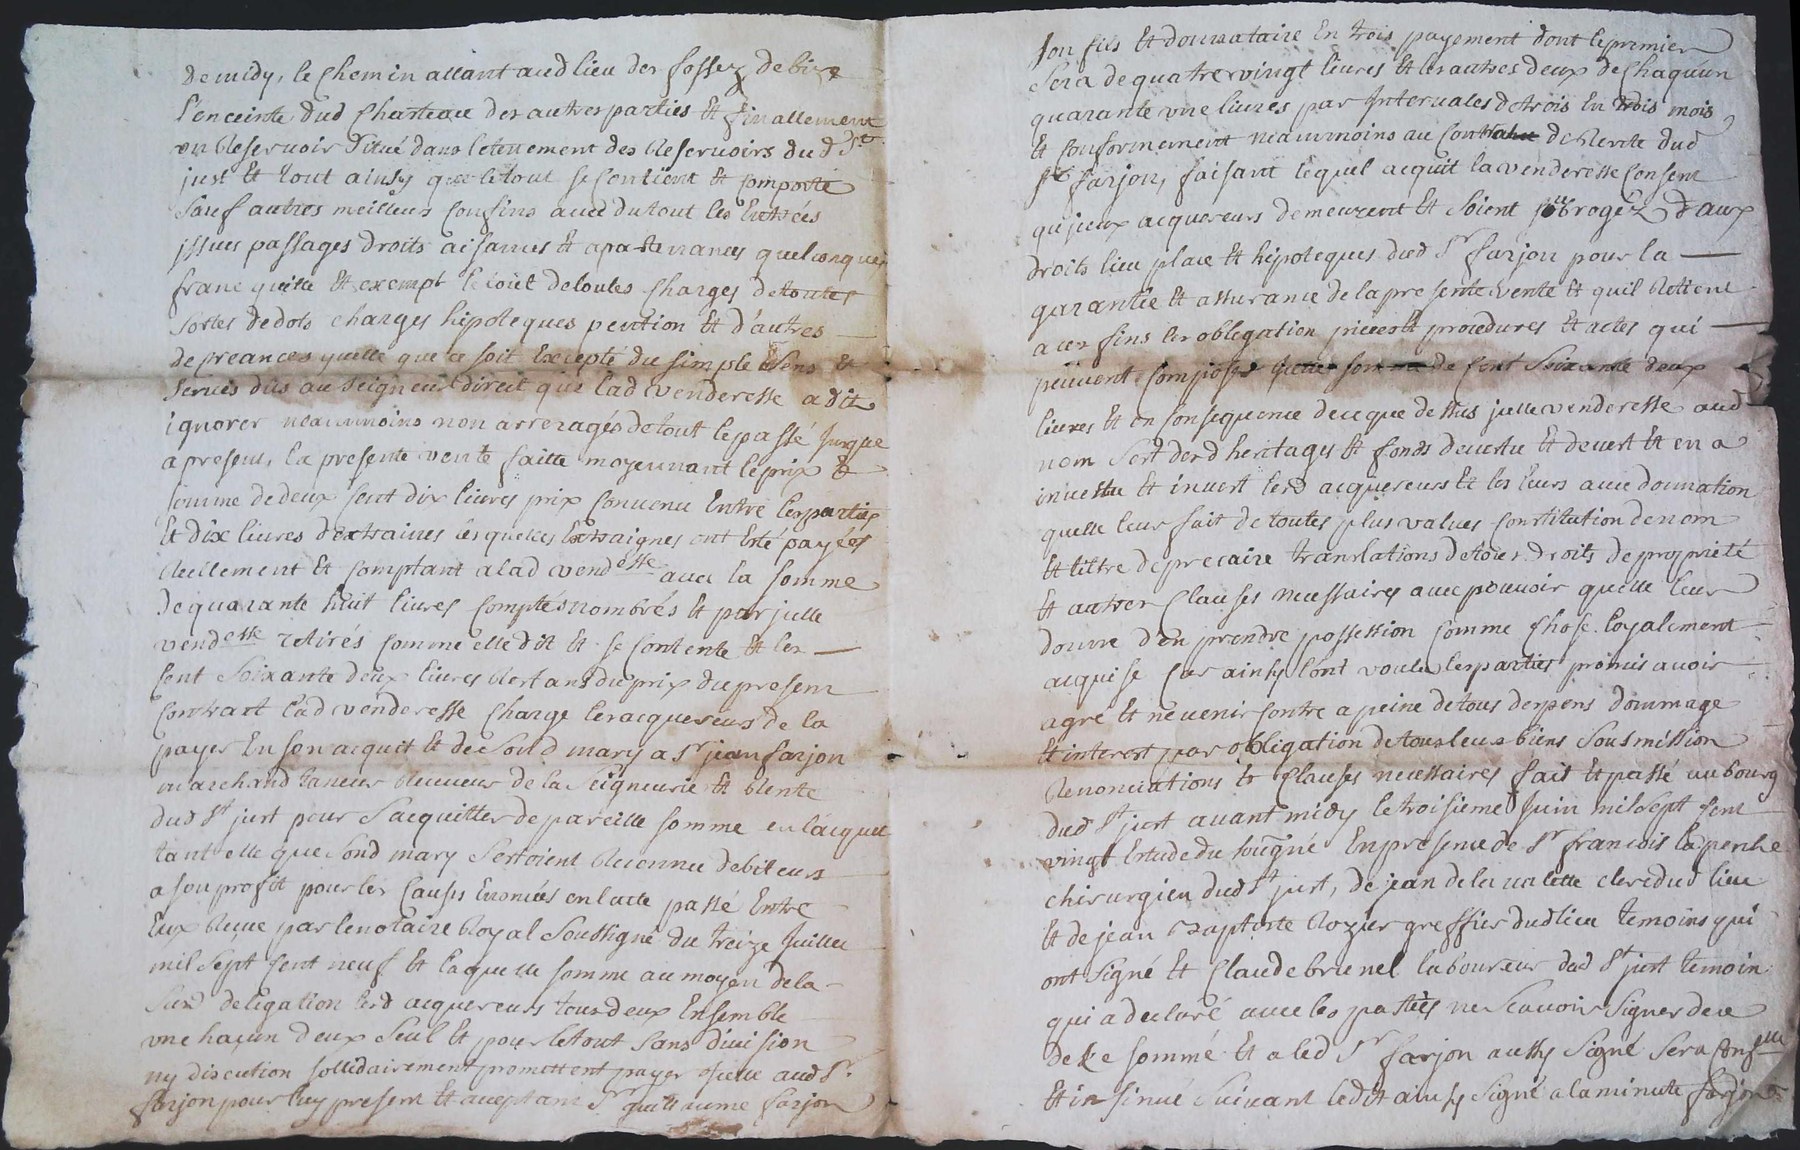 de midy, le chemin allant aud lieu des fossez de bize
l'enceinte dud Chasteau des autres parties Et finallement
un Reservoir Situé dans le tenement des Reservoirs du d St
just Et tout ainsy que le tout se Contient Et Comporte
Sauf autres meilleurs Confins avec du tout les Entrées
jssues passages droits aisances Et apartenances quelconques
franc quitte Et exempt de toutes Charges de toutes
Sortes de dots charges hipoteques pention Et d'autres
de creances quelle que ce soit Excepté du simple Cens Et
Servis dus au Seigneur direct que lad venderesse a dit
ignorer neaunmoins non arreragés de tout le passé Jusque
a present, la presente vente faitte moyennant le prix Et
somme de deux Cent dix livres prix Convenu Entre les parties
Et dix livres d'extraines lesquelles Extraignes ont Esté payées
Reellement Et Comptant a lad vendesse avec la somme
de quarante huit livres Comptés nombrés Et par jcelle
vendesse retirés Comme elle dit Et se Contente Et les
Cent Soixante deux livres Restans du prix du present
Contrart lad venderesse Charge les acquereurs de la
payer En son acquit Et de Sond mary a Sr jean farjon
marchand taneur Receveur de la Seigneurie Et Rente
dud St just pour S'acquitter de pareille somme en laquelle
tant elle que Sond mary Sestoient Reconnu debiteurs
a son profit pour les Causes Enoncées en lacte passé Entre
Eux Receu par le notaire Royal Soussigné du treize Juillet
mil Sept Cent neuf Et laquelle somme au moyen de la
Susd delegation lesd acquereurs tous deux Ensemble
un chacun d'eux Seul Et pour le tout Sans division
ny discution sollidairement promettent payer aud Sr
farjon pour luy present Et acceptant Sr guillaume farjon
son fils Et donnataire En trois payement dont le premier
Sera de quatre vingt livres Et les autres deux de Chaqu'un
quarante une livres par Intervales de trois En trois mois
Et Conformement neaunmoins au de Rente dud
Sr farjon, faisant lequel acquit la venderesse Consent
qu'jceux acquereurs demeurent Et Soient subrogéz d'aux
droits lieu place Et hipoteques dud Sr farjon pour la
garantie Et assurance de la presente vente Et quil Retient
a ces fins les oblegation pieces Et procedures Et actes qui
peuvent Composer de Cent Soixante deux
livres Et en Consequence de ce que dessus jcelle venderesse aud
nom Sest des d heritages Et fonds devestu Et devest Et en a
investu Et invest lesd acquereurs Et les leurs avec donnation
quelle leur fait de toutes plus values Constitution de nom
Et tiltre de precaire translations de tous droits de propriété
Et autres Clauses necessaires avec pouvoir quelle leur
donne d'en prendre possession Comme Chose loyalement
acquise Car ainsy lont voulu les parties promis avoir
agré Et ne venir Contre a peine de tous despens dommage
Et interest par obligation de tous leurs biens Sousmission
Renonciations Et Clauses necessaires fait Et passé au bourg
dud St just avant midy le troisieme Juin mil Sept Cent
vingt Estude du Sougné En presence de Sr francois Laperche
chirurgien dud St just, de jean de la valette clerc dud lieu
Et de jean Baptiste Rozier greffier dud lieu temoins qui
ont Signé Et Claude brunel laboureur dud St just temoin
qui a declaré avec les parties ne Scavoir Signer de ce
de Ce sommé Et a led Sr farjon aussy Signé Sera Conllé
Et insinué Suivant ledit ainsy Signé a la minute farjon